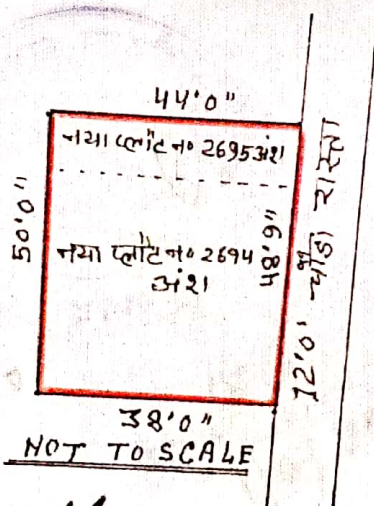 44'0"
नया प्लॉट न० 2695अंश
50'0"
नया प्लॉट न० 2694
अंश
48'9"
12'0' चौड़ा रास्ता
38'0"
NOT TO SCALE